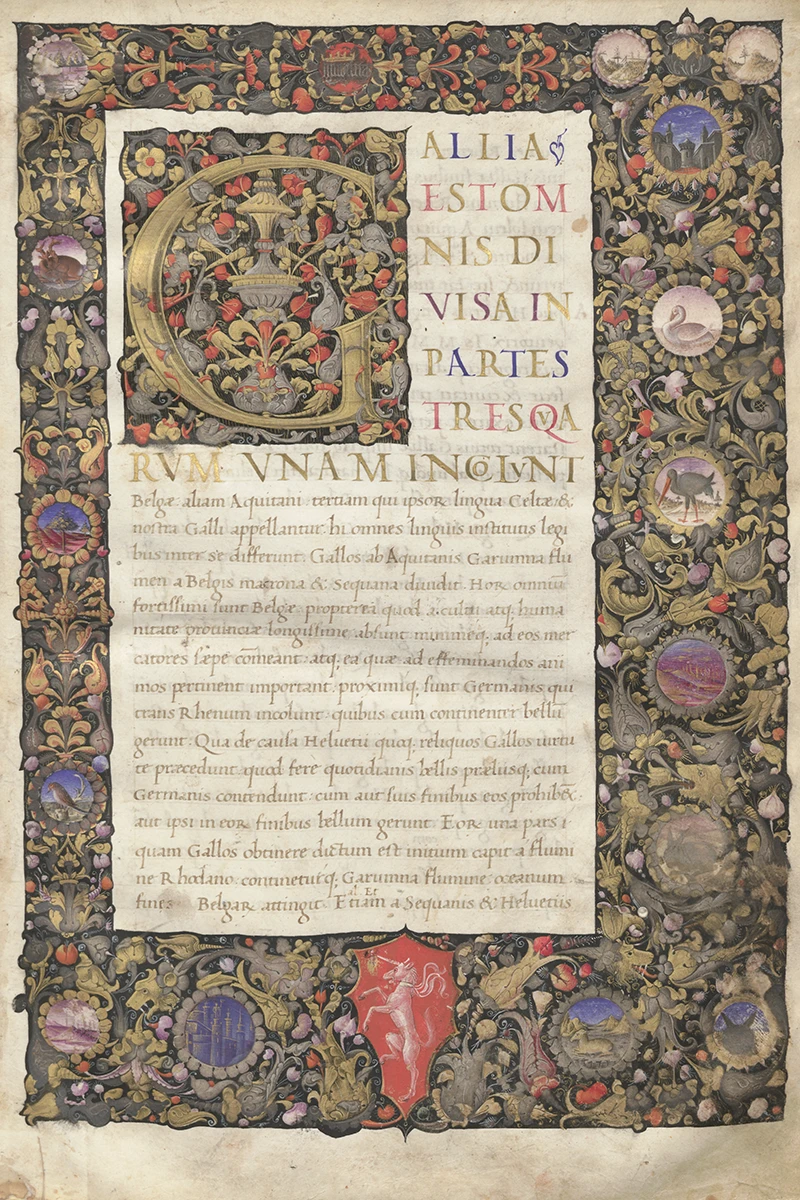 GALLIA
EST OM
NIS DI
VISA IN
PARTES
TRES QVA
RVM VNAM INCOLVNT
Belgæ aliam Aquitani tertiam qui ipsoꝝ lingua Celtæ &
nostra Galli appellantur. hi omnes linguis institutis legi
bus inter se differunt. Gallos ab Aquitanis Garunna flu
men a Belgis matrona & Sequana diuidit. Hoꝝ omniū
fortissimi sunt Belgæ propterea quod a cultu atq; huma
nitate prouinciæ longissime absunt minimeq; ad eos mer
catores sæpe cōmeant: atq; ea quæ ad effeminandos ani
mos pertinent important. proximiq; sunt Germanis qui
trans Rhenum incolunt: quibus cum continenter bellū
gerunt. Qua de causa Heluetii quoq; reliquos Gallos uirtu
te præcedunt quod fere quotidianis bellis prælusq; cum
Germanis contendunt: cum aut suis finibus eos prohibēt
aut ipsi in eoꝝ finibus bellum gerunt. Eoꝝ una pars i
quam Gallos obtinere dictum est initium capit a flumi
ne Rhodano: contineturq; Garumna flumine oceanum
al. Et
fines Belgaꝝ attingit. Etiam a Sequanis & Heluetiis